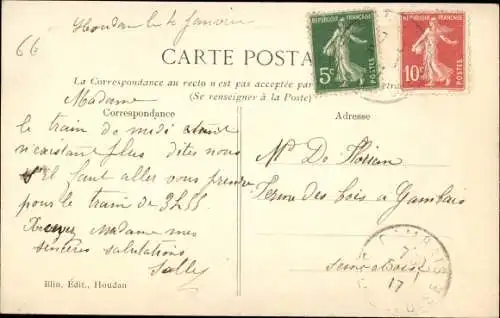 66
Houdan le 6 Janvier
CARTE POSTA
RÉPUBLIQUE FRANÇAISE
5c
POSTES
RÉPUBLIQUE FRANÇAISE
10c
POSTES
La Correspondance au recto n'est pas acceptée par
(Se renseigner à la Poste)
Correspondance
Adresse
Madame
le train de midi
n'existant plus dites nous
s'il faut aller vous prendre
pour le train de 3h55
Madame mes
sincères salutations
Sally
Mr De Florian
Ferme des bois à Gambais
Seine et Oise
7
17
Blin, Édit., Houdan